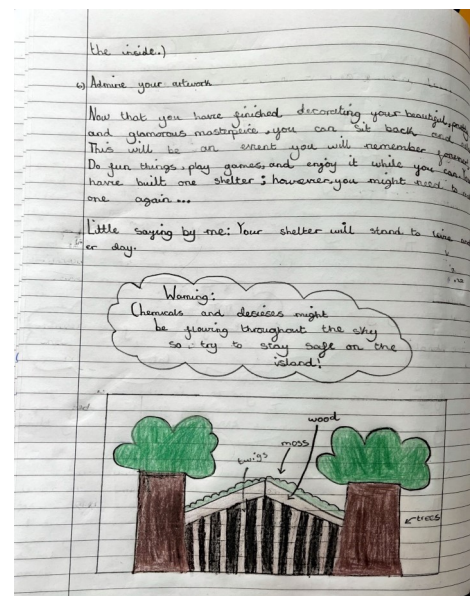 the inside.)
6) Admire your artwork
Now that you have finished decorating your beautiful,
and glamorous masterpiece, you can sit back and
This will be an event you will remember
Do fun things, play games, and enjoy it while you can.
have built one shelter; however, you might need to
one again...
Little saying by me: Your shelter will stand to
er day.
Warning:
Chemicals and desieses might
be flowing throughout the sky
so try to stay safe on the
island!
wood
moss
twigs
trees